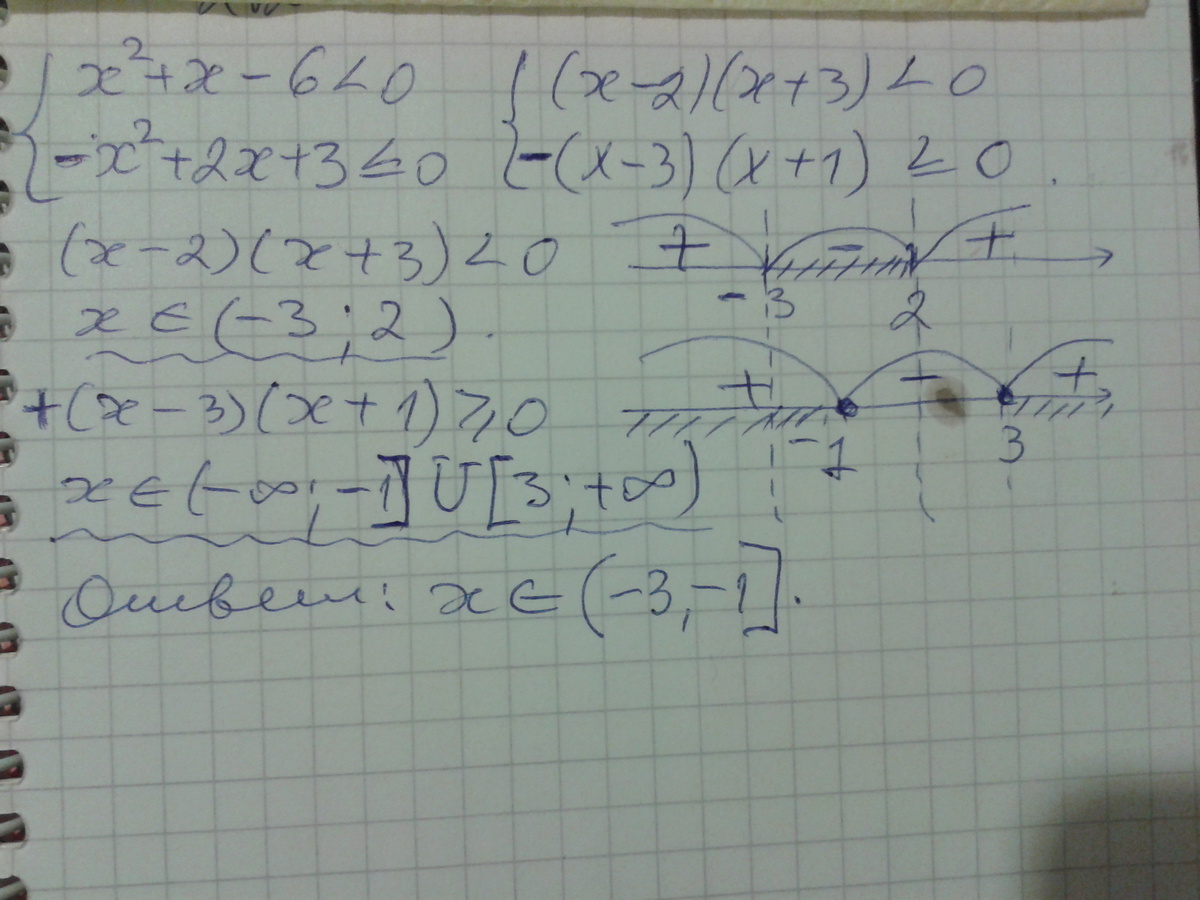 { x² + x − 6 < 0 { (x−2)(x+3) < 0
−x² + 2x + 3 ≤ 0 −(x−3)(x+1) ≤ 0.
(x−2)(x+3) < 0 + − +
−3 2
x ∈ (−3; 2).
+ − +
+(x−3)(x+1) ⩾ 0
−1 3
x ∈ (−∞; −1] U [3; +∞)
Ответ: x ∈ (−3, −1].